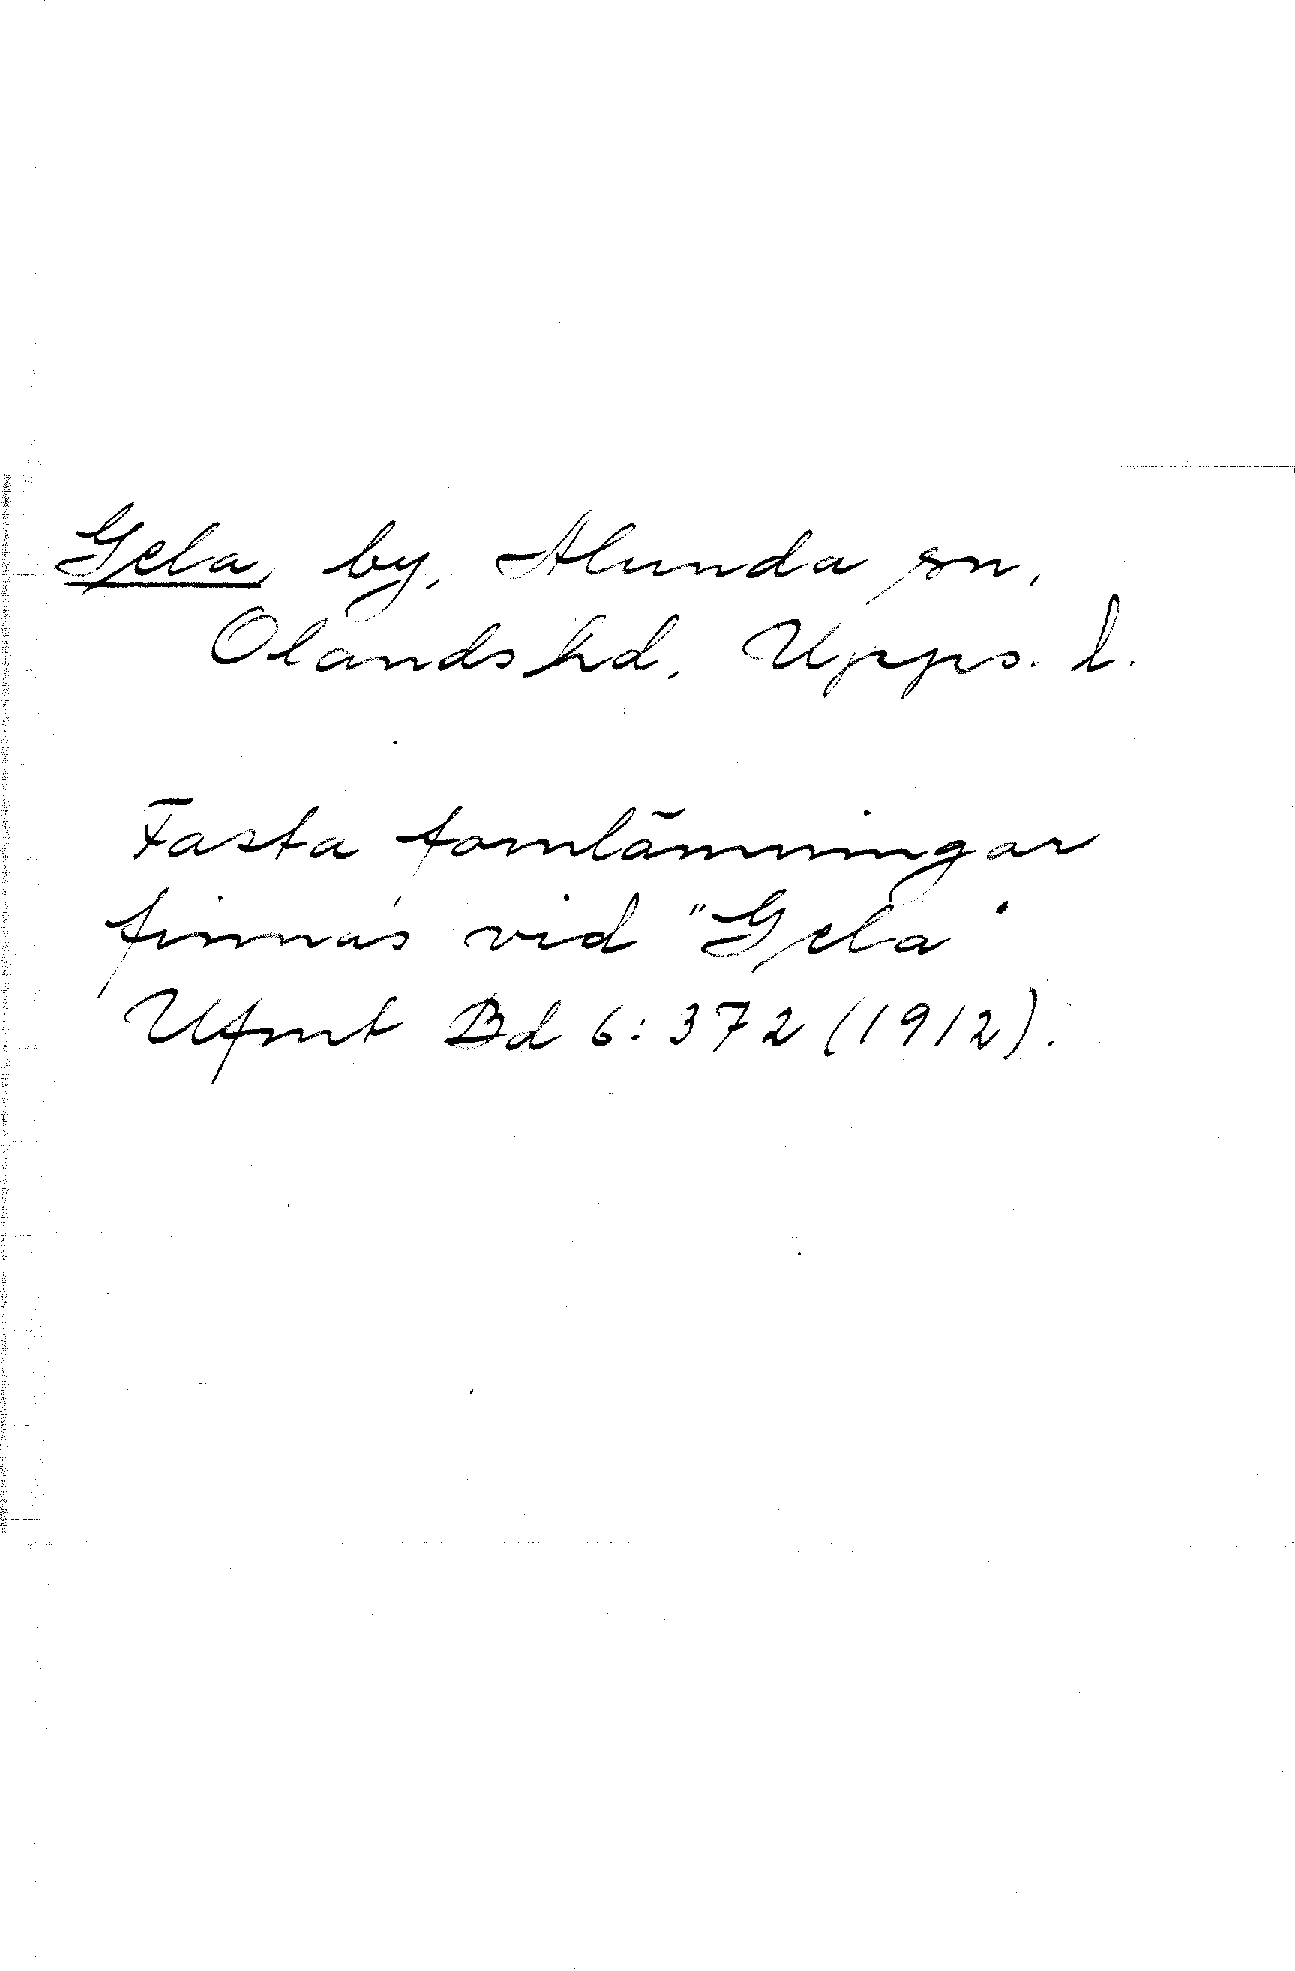 Gela, by, Alunda sn,
Olands hd, Upps. l.
Fasta fornlämningar
finnas vid "Gela"
Ufmt Bd 6:372 (1912).